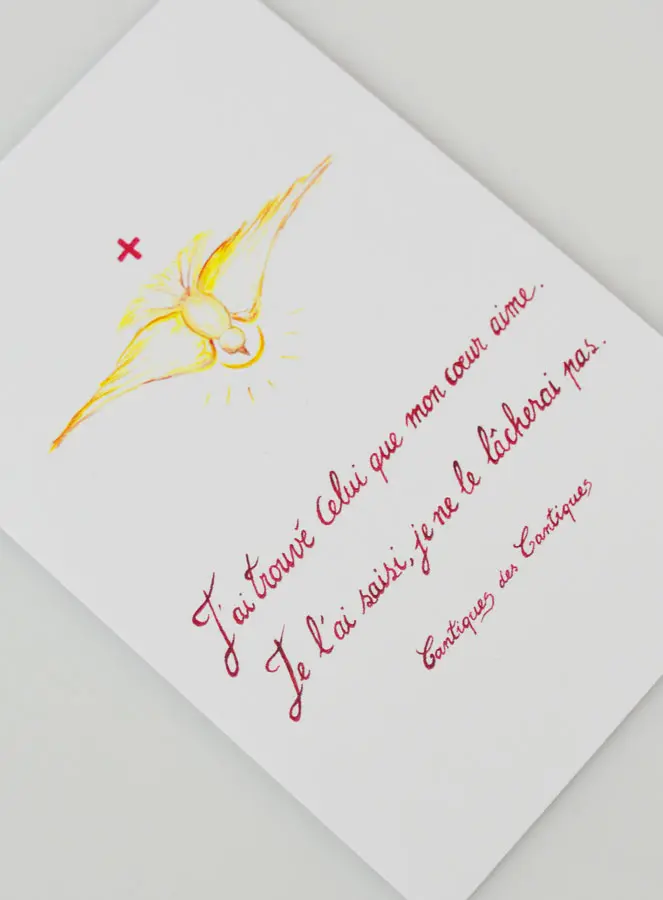 J'ai trouvé Celui que mon cœur aime.
Je l'ai saisi, je ne le lâcherai pas.
Cantiques des Cantiques